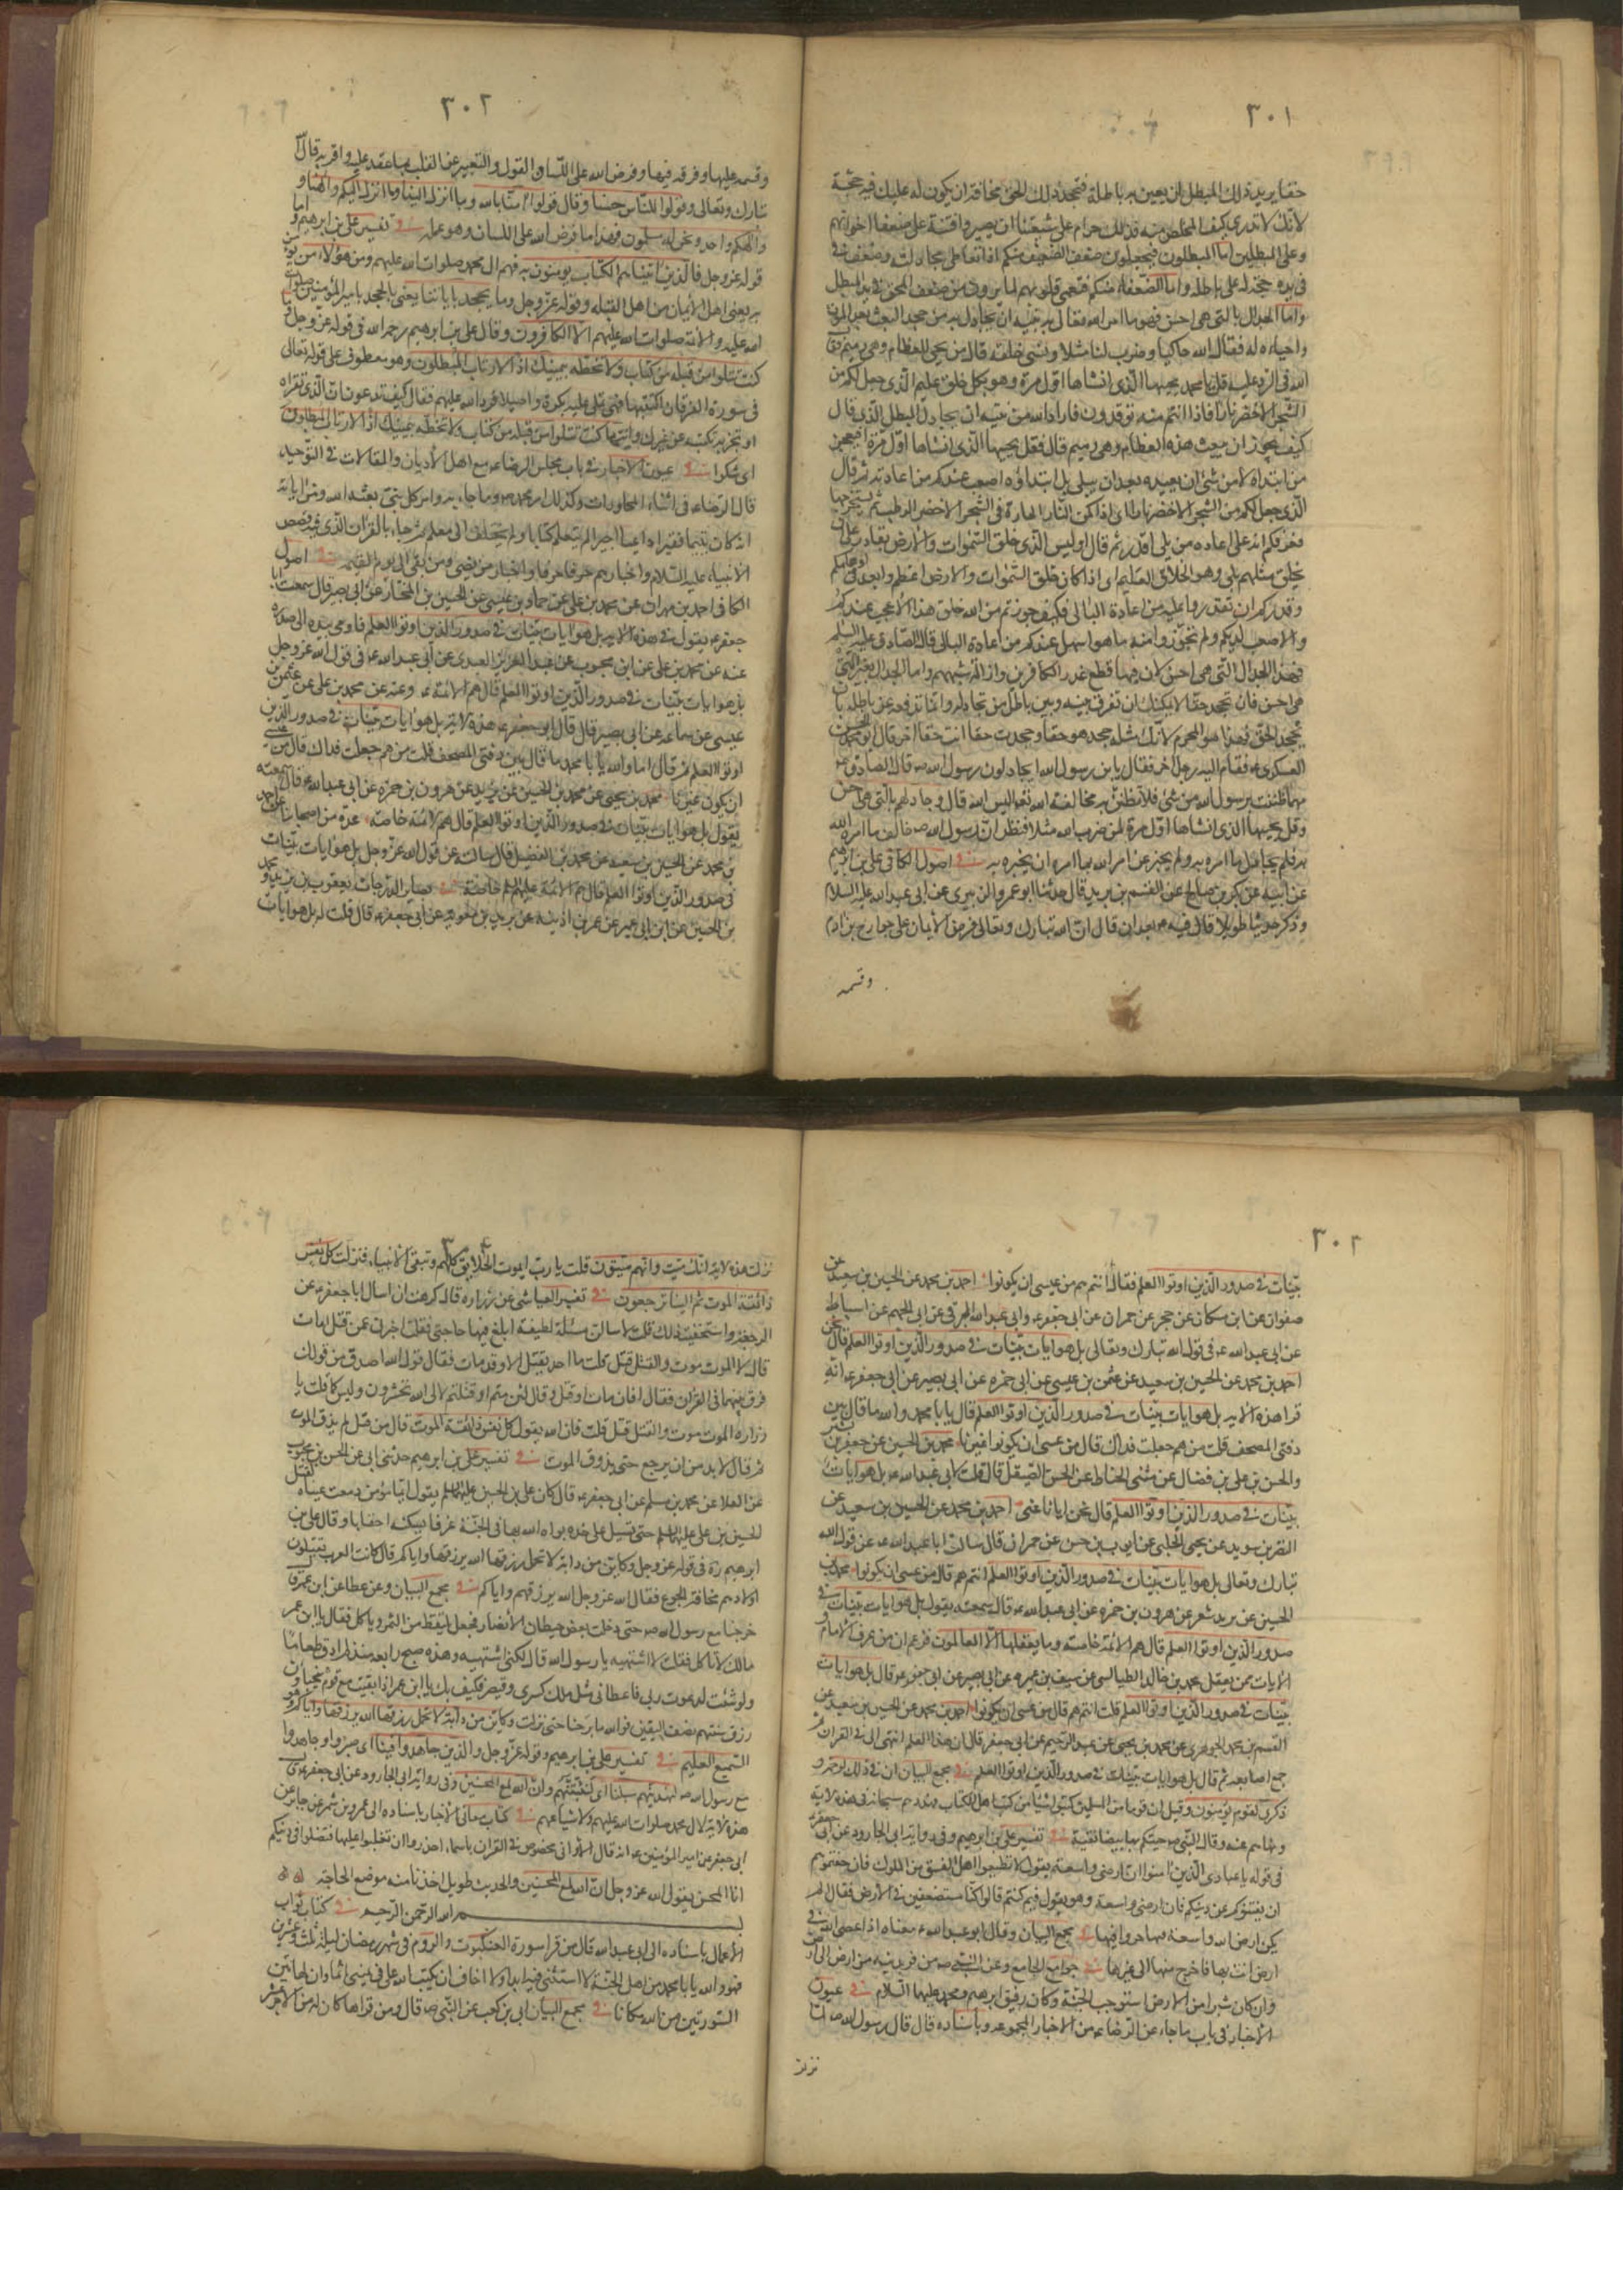 ٣٠١
حقا يريد بذلك المبطل ان يعين به باطله فتجحد ذلك الحق مخافة ان يكون له عليك فيه حجة
لانك لا تدري كيف المخلص منه فذلك حرام على شيعتنا ان يصيروا فتنة على ضعفاء اخوانهم
وعلى المبطلين اما المبطلون فيجعلون ضعف الضعيف منكم اذا تعاطى مجادلته وضعف في
في يده حجة له على باطله واما الضعفاء منكم فتعمى قلوبهم لما يرون من ضعف المحق في يد المبطل
واما الجدال بالتي هي احسن فهو ما امر الله تعالى به نبيه ان يجادل به من جحد البعث بعد الموت
واحياءه له فقال الله حاكيا وضرب لنا مثلا ونسي خلقه قال من يحيي العظام وهي رميم فقال
الله في الرد عليه قل يا محمد يحييها الذي انشاها اول مرة وهو بكل خلق عليم الذي جعل لكم من
الشجر الاخضر نارا فاذا انتم منه توقدون فاراد الله من نبيه ان يجادل المبطل الذي قال
كيف يجوز ان يبعث هذه العظام وهي رميم قال فقل يحييها الذي انشاها اول مرة افيعجز
من ابتدا به لا من شئ ان يعيده بعد ان يبلى بل ابتداؤه اصعب عندكم من اعادته ثم قال
الذي جعل لكم من الشجر الاخضر نارا اي اذا كمن النار الحارة في الشجر الاخضر الرطب ثم يستخرجها
فعرفكم انه على اعاده من بلى اقدر ثم قال اوليس الذي خلق السموات والارض بقادر على ان
يخلق مثلهم بلى وهو الخلاق العليم اي اذا كان خلق السموات والارض اعظم وابعد في اوهامكم
وقدركم ان تقدروا عليه من اعادة البالي فكيف جوزتم من الله خلق هذا الاعجب عندكم
والاصعب لديكم ولم تجوزوا منه ما هو اسهل عندكم من اعادة البالي قال الصادق عليه السلم
فهذا الجدال بالتي هي احسن لان فيها قطع عذر الكافرين وازالة شبههم واما الجدال بغير التي
هي احسن فان تجحد حقا لا يمكنك ان تفرق بينه وبين باطل من تجادله وانما تدفعه عن باطله بان
تجحد الحق فهذا هو المحرم لانك مثله جحد هو حقا وجحدت انت حقا اخر قال ابو محمد الحسن
العسكري ع فقام اليه رجل اخر فقال يا بن رسول الله ايجادلون رسول الله ص قال الصادق ع
مهما ظننت برسول الله من شئ فلا تظنن به مخالفة الله تعالى اليس الله قال وجادلهم بالتي هي احسن
وقل يحييها الذي انشاها اول مرة لمن ضرب الله مثلا افتظن ان رسول الله ص خالف ما امره الله
به فلم يجادل بما امره به ولم يخبر عن امر الله بما امره ان يخبره به في اصول الكافي علي بن ابرهيم
عن ابيه عن بكر بن صالح عن القسم بن بريد قال حدثنا ابو عمرو الزبيري عن ابي عبد الله عليه السلام
وذكر حديثا طويلا قال فيه ع بعد ان قال ان الله تبارك وتعالى فرض الايمان على جوارح بن ادم
وقسمه
٣٠٢
وقسمه عليها وفرقه فيها وفرض الله على اللسان القول والتعبير عن القلب بما عقد عليه واقر به قال الله
تبارك وتعالى وقولوا للناس حسنا وقال قولوا امنا بالله وما انزل الينا وما انزل اليكم والهنا و
والهكم واحد ونحن له مسلمون فهذا ما فرض الله على اللسان وهو عمله في تفسير علي بن ابرهيم و اما
قوله عز وجل فالذين اتيناهم الكتاب يؤمنون به فهم ال محمد صلوات الله عليهم ومن هؤلاء من يؤمن
به يعني اهل الايمان من اهل القبلة وقوله عز وجل وما يجحد باياتنا يعني بالجحد بامير المؤمنين صلوات
الله عليه والائمة صلوات الله عليهم الا الكافرون وقال علي بن ابرهيم رحمه الله في قوله عز وجل وما
كنت تتلوا من قبله من كتاب ولا تخطه بيمينك اذا لارتاب المبطلون وهو معطوف على قوله تعالى
في سورة الفرقان اكتتبها فهي تملى عليه بكرة واصيلا فرد الله عليهم فقال كيف تدعون ان الذي تقراه
او تخبر به تكتبه عن غيرك وانت ما كنت تتلوا من قبله من كتاب ولا تخطه بيمينك اذا لارتاب المبطلون
اي شكوا في عيون الاخبار في باب مجلس الرضا ع مع اهل الاديان والمقالات في التوحيد
قال الرضا ع في اثناء المحاورات وكذلك امر محمد ص وما جاء به وامر كل نبي بعثه الله ومن اياته
انه كان يتيما فقيرا راعيا اجيرا لم يتعلم كتابا ولم يختلف الى معلم ثم جاء بالقران الذي فيه قصص
الانبياء عليه السلام واخبارهم حرفا حرفا واخبار من مضى ومن بقي الى يوم القيمة في اصول
الكافي احمد بن مهران عن محمد بن علي عن حماد بن عيسى عن الحسين بن المختار عن ابي بصير قال سمعت ابا
جعفر ع يقول في هذه الاية بل هو ايات بينات في صدور الذين اوتوا العلم فاومى بيده الى صدره
عنه عن محمد بن علي عن ابن محبوب عن عبد العزيز العبدي عن ابي عبد الله ع في قول الله عز وجل
بل هو ايات بينات في صدور الذين اوتوا العلم قال هم الائمة ع وعنه عن محمد بن علي عن عثمن بن
عيسى عن سماعه عن ابي بصير قال قال ابو جعفر ع هذه الاية بل هو ايات بينات في صدور الذين
اوتوا العلم ثم قال اما والله يا با محمد ما قال بين دفتي المصحف قلت من هم جعلت فداك قال من عسى
ان يكون غيرنا محمد بن يحيى عن محمد بن الحسين عن يزيد عن هرون بن حمزه عن ابي عبد الله ع قال سمعته
يقول بل هو ايات بينات في صدور الذين اوتوا العلم قال هم الائمة خاصة عدة من اصحابنا عن احمد
بن محمد عن الحسين بن سعيد عن محمد بن الفضيل قال سالت عن قول الله عز وجل بل هو ايات بينات
في صدور الذين اوتوا العلم قال هم الائمة عليهم السلم خاصة في بصاير الدرجات يعقوب بن يزيد و محمد
بن الحسين عن ابن ابي عمير عن عمر بن اذينه عن بريد بن معوية عن ابي جعفر ع قال قلت له بل هو ايات
٣٠٢
بينات في صدور الذين اوتوا العلم فقال انتم هم من عسى ان يكونوا احمد بن محمد عن الحسين بن سعيد عن
صفوان عن ابن مسكان عن حجر عن حمران عن ابي جعفر ع وابي عبد الله البرقي عن ابي الجهم عن اسباط
عن ابي عبد الله ع في قول الله تبارك وتعالى بل هو ايات بينات في صدور الذين اوتوا العلم قال نحن
احمد بن محمد عن الحسين بن سعيد عن عثمن بن عيسى عن ابي حمزه عن ابي بصير عن ابي جعفر ع انه
قرا هذه الاية بل هو ايات بينات في صدور الذين اوتوا العلم قال يا با محمد والله ما قال بين
دفتي المصحف قلت من هم جعلت فداك قال من عسى ان يكونوا غيرنا محمد بن الحسين عن جعفر بن بشير
والحسن بن علي بن فضال عن مثنى الحناط عن الحسن الصيقل قال قلت لابي عبد الله ع بل هو ايات
بينات في صدور الذين اوتوا العلم قال نحن ايانا عنى احمد بن محمد عن الحسين بن سعيد عن
النضر بن سويد عن يحيى الحلبي عن ايوب بن حسن عن حمران قال سالت ابا عبد الله ع عن قول الله
تبارك وتعالى بل هو ايات بينات في صدور الذين اوتوا العلم انتم هم قال من عسى ان يكونوا محمد بن
الحسين عن يزيد شعر عن هرون بن حمزه عن ابي عبد الله ع قال سمعته يقول بل هو ايات بينات في
صدور الذين اوتوا العلم قال هم الائمة خاصة وما يعقلها الا العالمون فزعم ان من عرف الامام و
الايات ممن يعقل محمد بن خالد الطيالسي عن سيف بن عميره عن ابي بصير عن ابي جعفر ع قال بل هو ايات
بينات في صدور الذين اوتوا العلم قلت انتم هم قال من عسى ان يكونوا احمد بن محمد عن الحسين بن سعيد عن
القسم بن محمد الجوهري عن محمد بن يحيى عن عبد الرحيم عن ابي جعفر قال ان هذا العلم انتهى الي في القران ثم
جمع اصابعه ثم قال بل هو ايات بينات في صدور الذين اوتوا العلم في مجمع البيان ان في ذلك لرحمة و
ذكرى لقوم يؤمنون وقيل ان قوما من المسلمين كتبوا شيئا من كتب اهل الكتاب فهددهم سبحانه في هذه الاية
ونهاهم عنه وقال النبي ص جئتكم بها بيضاء نقية في تفسير علي بن ابرهيم وفي رواية ابي الجارود عن ابي جعفر ع
في قوله يا عبادي الذين امنوا ان ارضي واسعة يقول لا تطيعوا اهل الفسق من الملوك فان خفتموهم
ان يفتنوكم عن دينكم فان ارضي واسعة وهو يقول فيم كنتم قالوا كنا مستضعفين في الارض فقال الم
يكن ارض الله واسعة فتهاجروا فيها في مجمع البيان وقال ابو عبد الله ع معناه اذا عصي الله في
ارض انت بها فاخرج منها الى غيرها في جوامع الجامع وعن النبي ص من فر بدينه من ارض الى ارض
وان كان شبرا من الارض استوجب الجنة وكان رفيق ابرهيم ومحمد عليهما السلام في عيون
الاخبار في باب ما جاء عن الرضا ع من الاخبار المجموعة وباسناده قال قال رسول الله ص لما
نزلت
نزلت هذه الاية انك ميت وانهم ميتون قلت يا رب ايموت الخلايق كلهم وتبقى الانبياء فنزلت كل نفس
ذائقة الموت ثم الينا ترجعون في تفسير العياشي عن زراره قال كرهت ان اسال ابا جعفر ع عن
الرجعة واستخفيت ذلك قلت لاسالن مسئلة لطيفة ابلغ فيها حاجتي فقلت اخبرني عمن قتل امات
قال لا الموت موت والقتل قتل قلت ما احد يقتل الا وقد مات فقال قول الله اصدق من قولك
فرق بينهما في القران فقال افان مات او قتل وقال لئن متم او قتلتم لالى الله تحشرون وليس كما قلت يا
زراره الموت موت والقتل قتل قلت فان الله يقول كل نفس ذائقة الموت قال من قتل لم يذق الموت
ثم قال لا بد من ان يرجع حتى يذوق الموت في تفسير علي بن ابرهيم حدثني ابي عن الحسن بن محبوب
عن العلا عن محمد بن مسلم عن ابي جعفر ع قال كان علي بن الحسين عليهما السلم يقول ايما مؤمن دمعت عيناه لقتل
الحسين بن علي عليهما السلم حتى تسيل على خده بواه الله بها في الجنة غرفا يسكنها احقابا وقال علي بن
ابرهيم ره في قوله عز وجل وكاين من دابة لا تحمل رزقها الله يرزقها واياكم قال كانت العرب يقتلون
اولادهم مخافة الجوع فقال الله عز وجل الله يرزقهم واياكم في مجمع البيان وعن عطا عن ابن عمر قال
خرجنا مع رسول الله ص حتى دخلت بعض حيطان الانصار فجعل يلتقط من التمر وياكل فقال يا ابن عمر
مالك لا تاكل فقلت لا اشتهيه يا رسول الله قال لكني اشتهيه وهذه صبح رابعة منذ لم اذق طعاما
ولو شئت لدعوت ربي فاعطاني مثل ملك كسرى وقيصر فكيف بك يا ابن عمر اذا بقيت مع قوم يخباون
رزق سنتهم بضعف اليقين فوالله ما برحنا حتى نزلت وكاين من دابة لا تحمل رزقها الله يرزقها واياكم وهو
السميع العليم في تفسير علي بن ابرهيم وقوله عز وجل والذين جاهدوا فينا اي صبروا وجاهدوا
مع رسول الله ص لنهدينهم سبلنا اي لنثبتنهم وان الله لمع المحسنين وفي رواية ابي الجارود عن ابي جعفر ع قال
هذه الاية لال محمد صلوات الله عليهم ولاشياعهم في كتاب معاني الاخبار باسناده الى عمرو بن شمر عن جابر عن
ابي جعفر عن امير المؤمنين ع انه قال الا واني مخصوص في القران باسماء احذروا ان تغلبوا عليها فتضلوا في دينكم
انا المحسن يقول الله عز وجل ان الله لمع المحسنين والحديث طويل اخذنا منه موضع الحاجة
بسم الله الرحمن الرحيم في كتاب ثواب
الاعمال باسناده الى ابي عبد الله قال من قرا سورة العنكبوت والروم في شهر رمضان ليلة ثلث وعشرين
فهو والله يا با محمد من اهل الجنة لا استثني فيه ابدا ولا اخاف ان يكتب الله علي في يميني اثما وان لهاتين
السورتين من الله مكانا في مجمع البيان ابي بن كعب عن النبي ص قال ومن قراها كان له من الاجر عشر